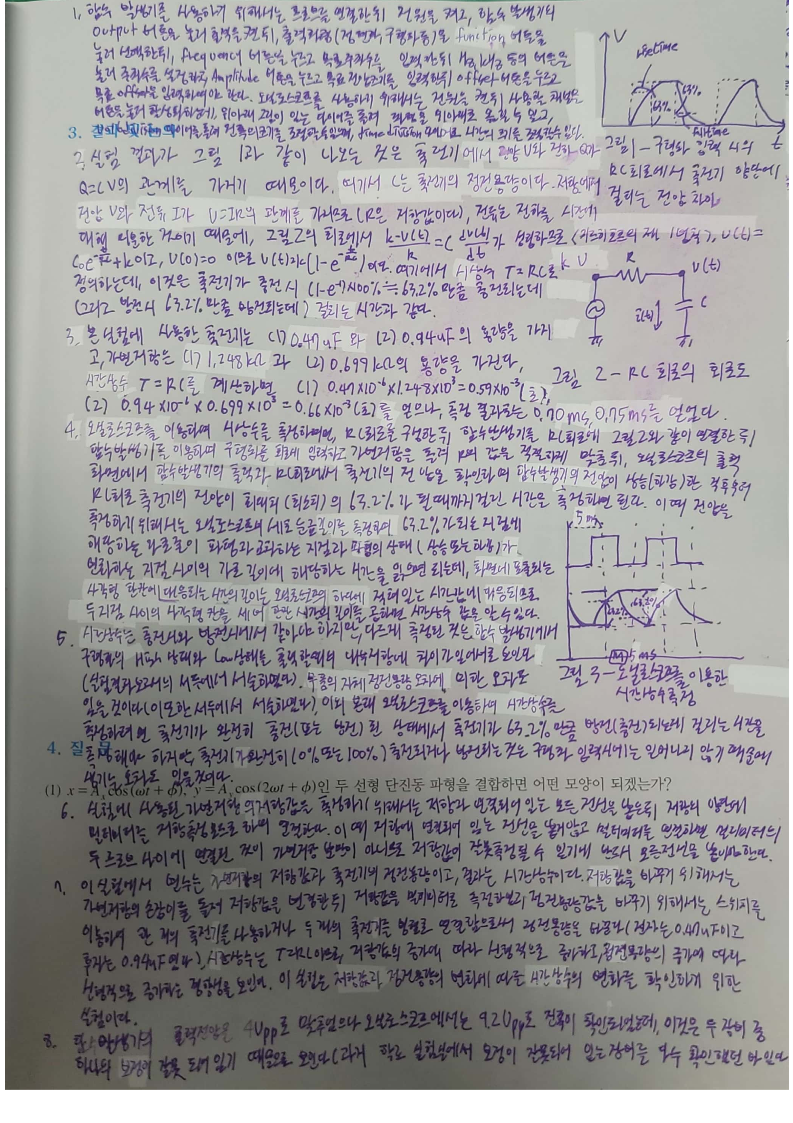 1. 함수 발생기를 사용하기 위해서는 프로브를 연결한 뒤 전원을 켜고, 함수 발생기의
Output 버튼을 눌러 출력을 켠 뒤, 출력파형(정현파, 구형파 등)을 function 버튼을
눌러 선택한 뒤, frequency 버튼을 누르고 목표 주파수를 입력한 뒤 Hz, kHz 등의 버튼을
눌러 주파수를 설정하고, Amplitude 버튼을 누르고 목표 전압크기를 입력한 뒤 offset 버튼을 누르고
목표 offset을 입력하여야 한다. 오실로스코프를 사용하기 위해서는 전원을 켠 뒤 사용할 채널을
버튼을 눌러 활성화하는데, 위아래 그림이 있는 다이어를 통해 파형을 위아래로 옮길 수 있고,
다이어를 통해 전압의 크기를 조절할 수 있으며, 시간의 크기를 조절할 수 있다.
V
risetime
63%
63%
falltime
t
그림 1 - 구형파 입력 시의
RC회로에서 축전기 양단에
걸리는 전압 차이
2. 실험 결과가 그림 1과 같이 나오는 것은 축전기에서 전압 V와 전하 Q가
Q=CV의 관계를 가지기 때문이다. 여기서 C는 축전기의 정전용량이다. 저항에서
전압 V와 전류 I가 V=IR의 관계를 가지므로 (R은 저항값이다), 전류는 전하를 시간에
대해 미분한 것이기 때문에, 그림 2의 회로에서 k-v(t)/R = C dv(t)/dt 가 성립하므로 (키르히호프의 제 1법칙), v(t)=
정의하는데, 이것은 축전기가 충전 시 (1-e⁻¹)×100% ≒ 63.2%만큼 충전되는데
(그리고 방전시 63.2%만큼 방전되는데) 걸리는 시간과 같다.
k V
R
v(t)
C
그림 2 - RC 회로의 회로도
3. 본 실험에 사용한 축전기는 (1) 0.47uF 와 (2) 0.94uF의 용량을 가지
고, 가변저항은 (1) 1.248kΩ 과 (2) 0.699kΩ의 용량을 가진다,
시간상수 T=RC를 계산하면, (1) 0.47×10⁻⁶×1.248×10³=0.59×10⁻³(초),
(2) 0.94×10⁻⁶×0.699×10³=0.66×10⁻³(초)를 얻으나, 측정 결과로는 0.70ms, 0.75ms를 얻었다.
4. 오실로스코프를 이용하여 시상수를 측정하려면, RC회로를 구성한 뒤 함수발생기를 RC회로에 그림 2와 같이 연결한 뒤
함수발생기를 이용하여 구형파를 회로에 입력하고 가변저항을 통해 R의 값을 적절하게 맞춘 뒤, 오실로스코프의 출력
화면에서 함수발생기의 출력과 RC회로에서 축전기의 전압을 확인하며 함수발생기의 전압이 상승(하강)한 직후부터
RC회로 축전기의 전압이 최대피(최소피)의 63.2%가 될 때까지 걸린 시간을 측정하면 된다. 이 때 전압을
측정하기 위해서는 오실로스코프의 세로 눈금 길이를 측정하면 63.2%가 되는 지점에
해당하는 가로줄이 파형과 교차하는 지점과 파형의 상태(상승 또는 하강)가
변화하는 지점 사이의 가로 길이에 해당하는 시간을 읽으면 되는데, 화면에 표출되는
사각형 한 칸에 대응되는 시간의 길이는 오실로스코프의 하단에 적혀있는 시간값에 대응되므로
두 지점 사이의 사각형 칸을 세어 한 칸 시간의 길이를 곱하면 시간상수 값을 알 수 있다.
5ms
63.2%
63.2%
[M] 5ms
그림 3 - 오실로스코프를 이용한
시간상수 측정
5. 시간상수는 충전시와 방전시에서 같아야 하지만, 다르게 측정된 것은 함수 발생기에서
구형파의 High 상태와 Low 상태를 출력할 때의 내부저항에 차이가 있어서로 보인다
(실험결과보고서의 서두에서 서술하였다). 부품의 자체 정전용량 오차에 의한 오차도
있을 것이다 (이 또한 서두에서 서술하였다). 이외 본래 오실로스코프를 이용하여 시간상수를
측정하려면 축전기가 완전히 충전(또는 방전)된 상태에서 축전기가 63.2%만큼 방전(충전)되는데 걸리는 시간을
측정해야 하지만, 축전기가 완전히(0% 또는 100%) 축전되거나 방전되는 것은 구형파 입력시에는 일어나지 않기 때문에
생기는 오차도 있을 것이다.
4. 질문
(1) x = Aₓcos(ωt + φ), y = Aᵧcos(2ωt + φ)인 두 선형 단진동 파형을 결합하면 어떤 모양이 되겠는가?
6. 실험에 사용된 가변저항의 저항값을 측정하기 위해서는 저항과 연결되어 있는 모든 전선을 뽑은 뒤 저항의 양단에
멀티미터를 저항측정모드로 하여 연결한다. 이 때 저항에 연결되어 있는 전선을 뽑지 않고 멀티미터를 연결하면 멀티미터의
두 프로브 사이에 연결된 것이 가변저항 뿐만이 아니므로 저항값이 잘못 측정될 수 있기에 반드시 모든 전선을 뽑아야 한다.
7. 이 실험에서 변수는 가변저항의 저항값과 축전기의 정전용량이고, 결과는 시간상수이다. 저항값을 바꾸기 위해서는
가변저항의 손잡이를 돌려 저항값을 변경한 뒤 저항값을 멀티미터로 측정하였고, 정전용량값을 바꾸기 위해서는 스위치를
이용하여 한 개의 축전기를 사용하거나 두 개의 축전기를 병렬로 연결함으로써 정전용량을 바꿨다 (전자는 0.47uF이고
후자는 0.94uF였다). 시간상수는 T=RC이므로, 저항값의 증가에 따라 선형적으로 증가하고, 정전용량의 증가에 따라
선형적으로 증가하는 경향성을 보인다. 이 실험은 저항값과 정전용량의 변화에 따른 시간상수의 변화를 확인하기 위한
실험이다.
8. 함수발생기의 출력전압을 4Vpp로 맞추었으나 오실로스코프에서는 9.2Vpp로 전류이 확인되었는데, 이것은 두 장비 중
하나의 보정이 잘못 되어 있기 때문으로 보인다 (과거 학교 실험실에서 보정이 잘못되어 있는 장비를 다수 확인했던 바 있다